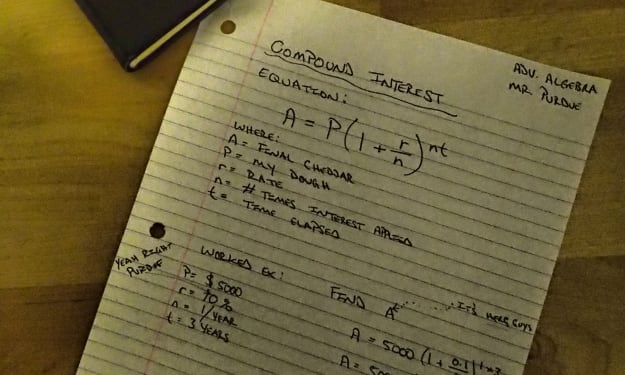 ADV. ALGEBRA
MR PURDUE
COMPOUND INTEREST
EQUATION:
A = P(1 + r/n)^nt
WHERE:
A = FINAL CHEDDAR
P = MY DOUGH
r = RATE
n = # TIMES INTEREST APPLIED
t = TIME ELAPSED
YEAH RIGHT
PURDUE
WORKED EX:
P = $5000
r = 10%
n = 1/YEAR
t = 3 YEARS
FIND A
IT'S HERE GUYS
A = 5000 (1 + 0.1/1
A =